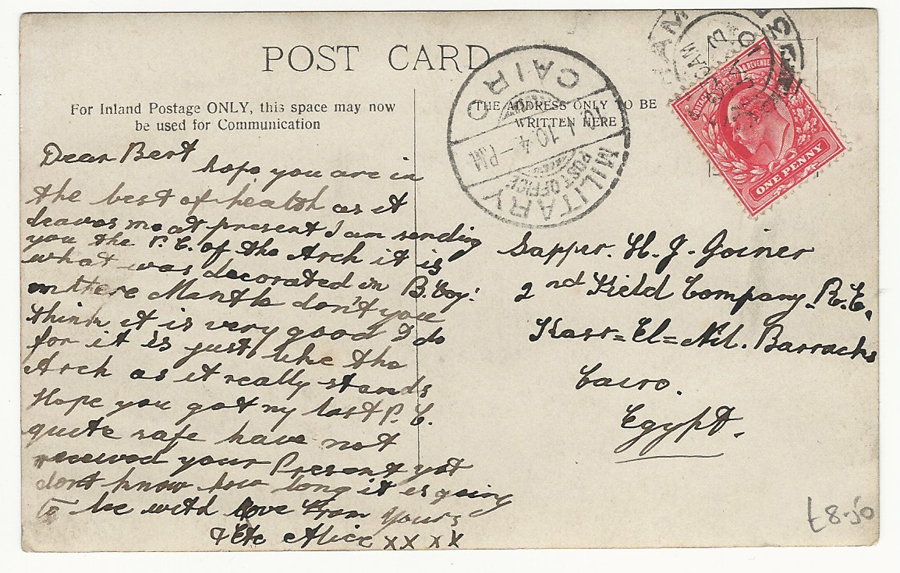 POST CARD
For Inland Postage ONLY, this space may now
be used for Communication
THE ADDRESS ONLY TO BE
WRITTEN HERE
MILITARY
POST OFFICE
CAIRO
10.4- P.M.
AM
ONE PENNY
& REVENUE
Dear Bert
hope you are in
the best of health as it
leaves me at present I am sending
you the P.C. of the Arch it is
what was decorated in B. Coy:
on there Mantle don't you
think it is very good I do
for it is just like the
Arch as it really stands
Hope you got my last P.C.
quite safe have not
received your Present yet
dont know how long it is going
to be with love from yours
Alice x x x x
Sapper. H. J. Joiner
2nd Field Company. R.E.
Kasr=El=Nil. Barracks
Cairo.
Egypt.
£8-50